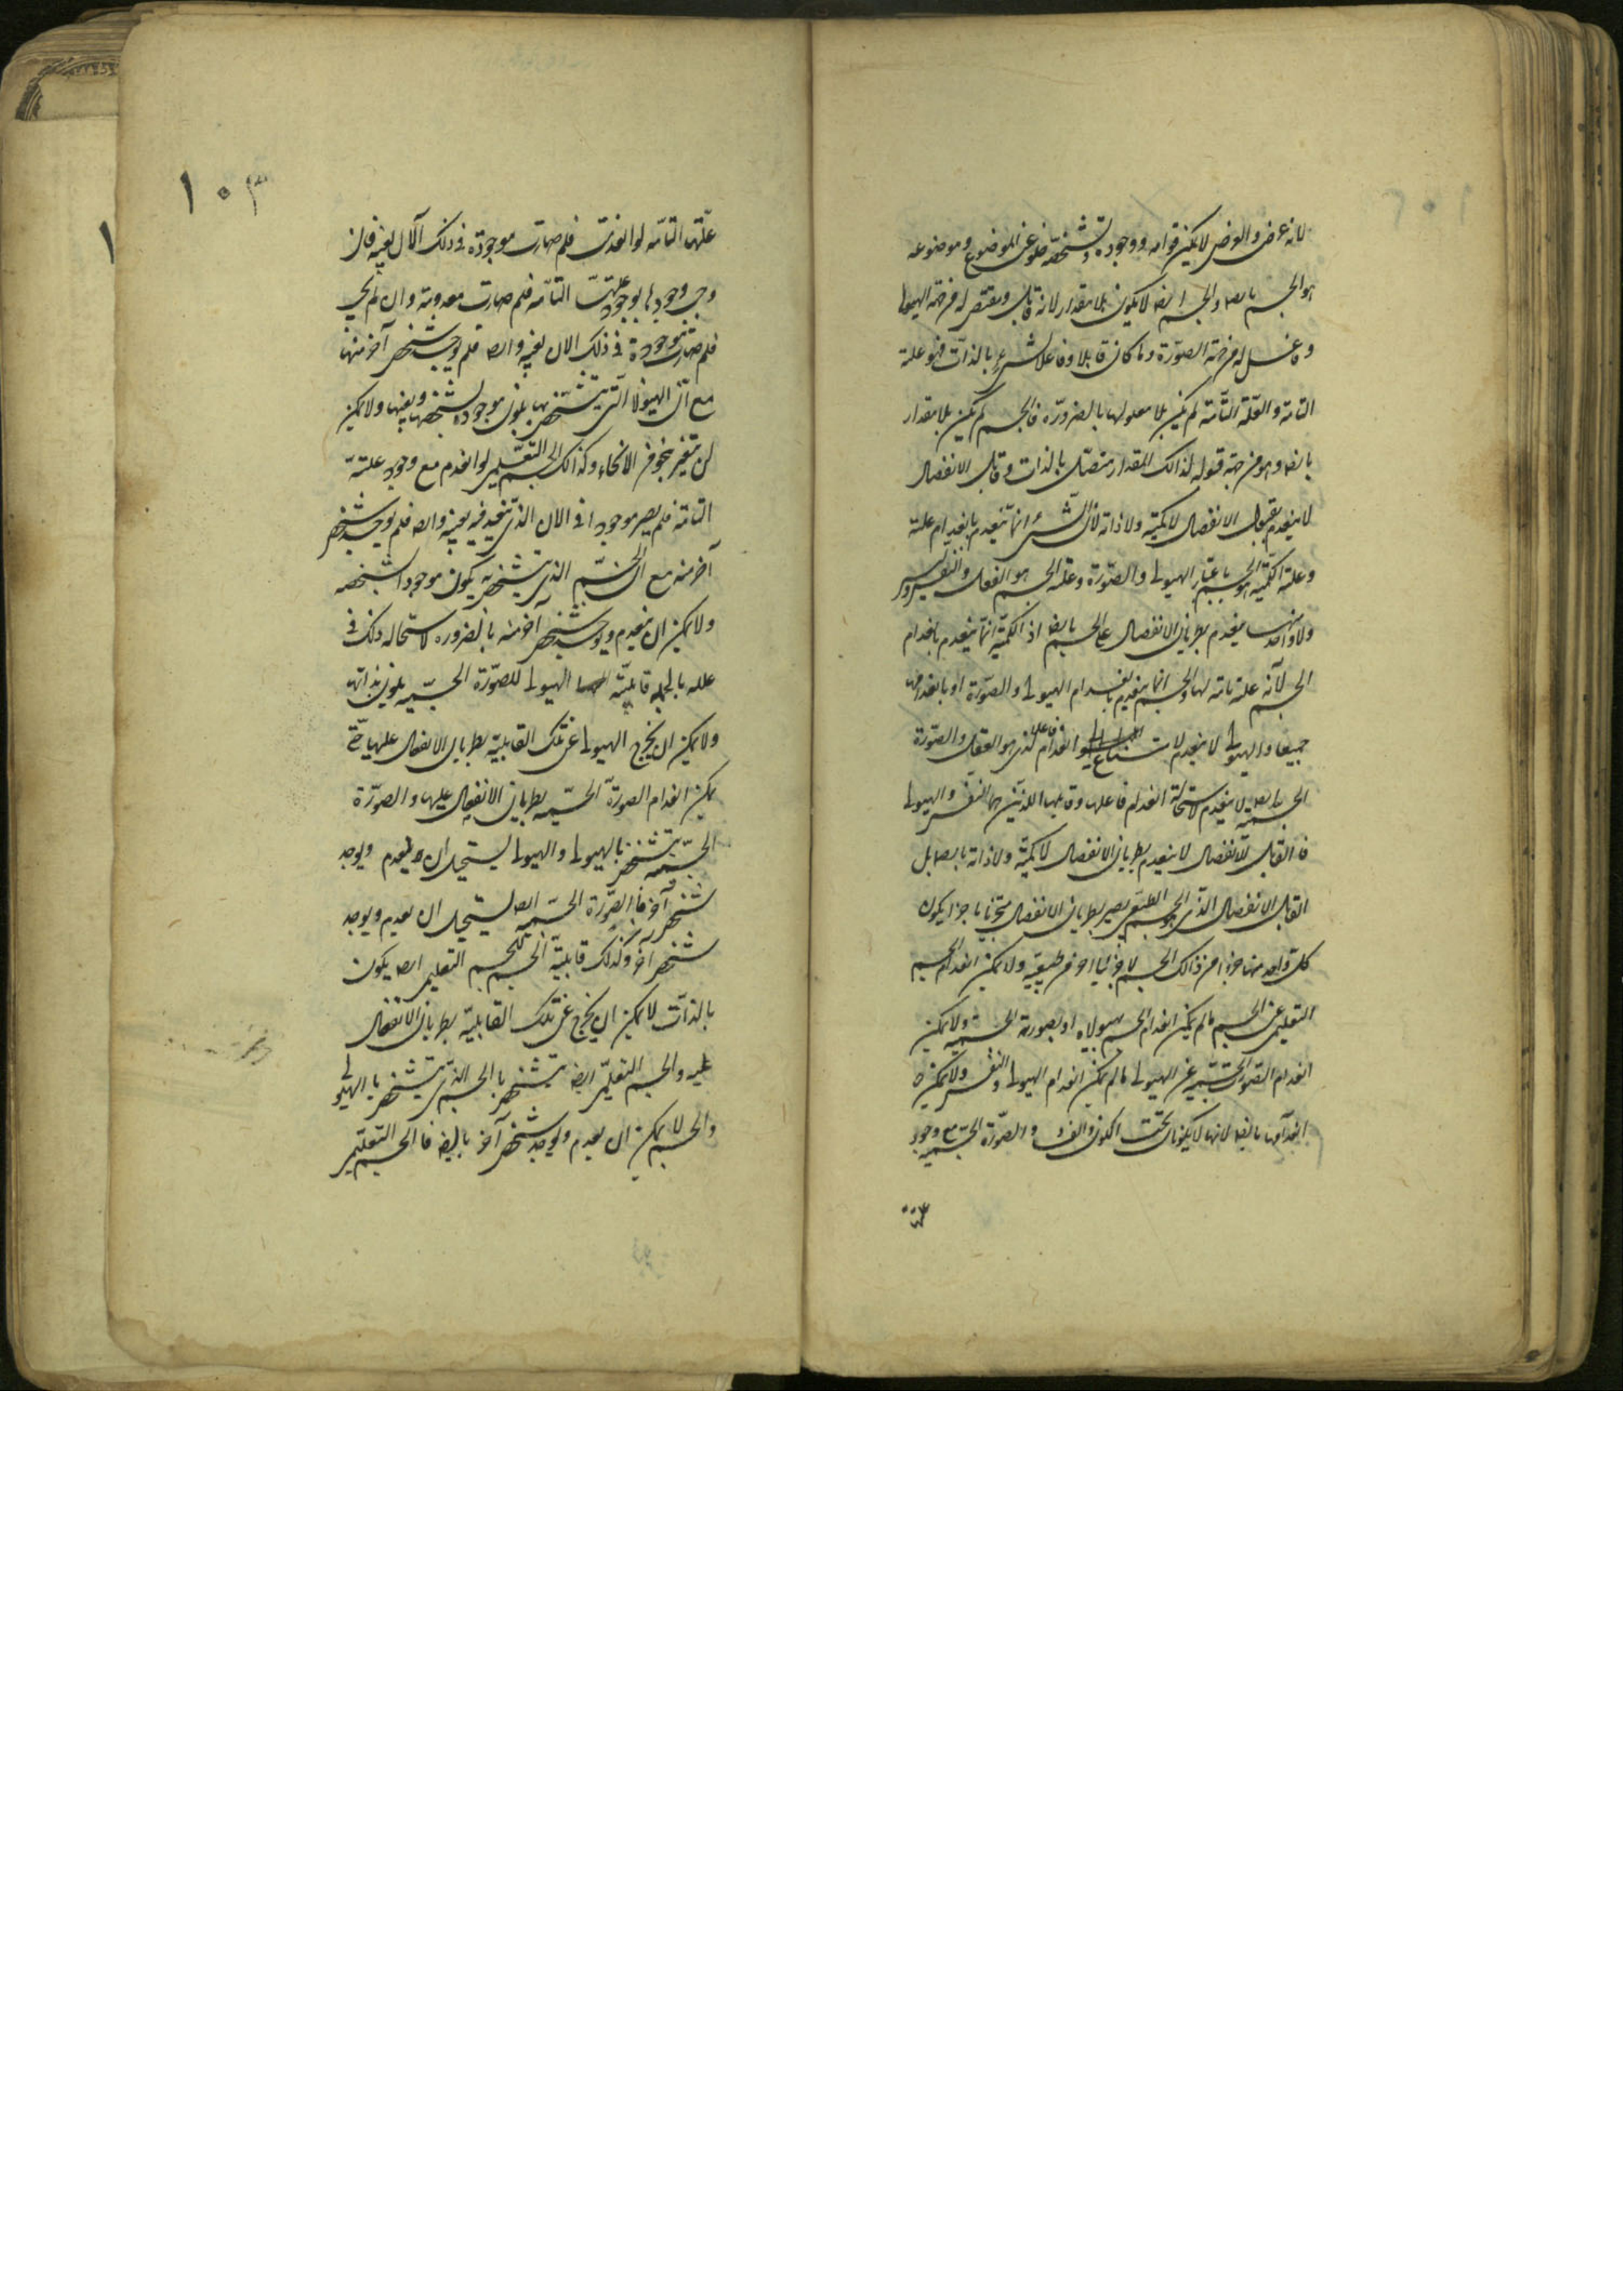 لانه عرض والعرض لا يمكن قوامه ووجوده وتشخصه خلو عن الموضوع وموضوعه
هو الجسم بالضـ والجسم ايضا لا يكون بلا مقدار لانه قابل ومقتض له من جهة الهيولى
وفاعل له من جهة الصورة وما كان قابلا وفاعلا لشيء بالذات فهو علته
التامة والعلة التامة لم يكن بلا معلولها بالضرورة فالجسم لم يكن بلا مقدار
بالضـ وهو من جهة قبوله لذالك المقدار متصل بالذات وقابل الانفصال
لا ينعدم بقبول الانفصال لا كميته ولا ذاته لان الشيء انما ينعدم بانعدام علته
وعلة الكمية هو الجسم باعتبار الهيولى والصورة وعلة الجسم هو العقل والنفس
ولا واحد منها ينعدم بطريان الانفصال على الجسم بالضـ اذ الكمية انما ينعدم بانعدام
الجسم لانه علة تامة لها والجسم انما ينعدم بانعدام الهيولى والصورة او بانعدامهما
جميعا والهيولى لا ينعدم لامتناع انعدام فاعل الذي هو العقل والصورة
الجسمية ايضـ لا ينعدم لاستحالة انعدام فاعلها وقابلها اللذين هما النفس والهيولى
فالقابل للانفصال لا ينعدم بطريان الانفصال لا كميته ولا ذاته بالضـ بل
القابل الانفصال الذي هو الجسم الطبيعي يصير بطريان الانفصال متجزيا باجزا يكون
كل واحد منها جزوا من ذالك الجسم لا جزئيا اخر من طبيعته ولا يمكن انعدام الجسم
التعليمى عن الجسم ما لم يمكن انعدام الجسم بهيولاه او بصورته الجسمية ولا يمكن
انعدام الصورة الجسمية عن الهيولى ما لم يمكن انعدام الهيولى والنفس ولا يمكن
انعدامهما بالضـ لانهما لا يكونا تحت الكون والفساد والصورة الجسمية مع وجود
١٠٣
علتها التامه لو انعدمت فلم صارت موجودة في ذلك الان بعينه فان
وجب وجودها بوجود علتها التامه فلم صارت معدومة وان لم يجب
فلم صارت موجودة في ذلك الان بعينه وايضـ فلم يوجد شخص آخر منها
مع ان الهيولا التي يتشخص بها يكون موجودة بشخصها وبعينها ولا يمكن
ان يتغير بنحو من الانحاء وكذالك الجسم التعليمى لو انعدم مع وجود علته
التامة فلم يصير موجودا في الان الذي ينعدم فيه بعينه وايضـ فلم يوجد شخص
آخر منه مع ان الجسم الذي يتشخص به يكون موجودا بشخصه
ولا يمكن ان ينعدم ويوجد شخص آخر منه بالضروره لاستحاله ذلك في
علله بالجمله قابلية الهيولى للصورة الجسميه يكون بذاتها
ولا يمكن ان يخرج الهيولى عن تلك القابلية بطريان الانفصال عليها حتى
يمكن انعدام الصورة الجسميه بطريان الانفصال عليها والصورة
الجسميه يتشخص بالهيولى والهيولى يستحيل ان ينعدم ويوجد
شخص آخر فالصورة الجسميه ايضـ يستحيل ان يعدم ويوجد
شخص آخر وكذلك قابلية الجسم للجسم التعليمى ايضـ يكون
بالذات لا يمكن ان يخرج عن تلك القابلية بطريان الانفصال
عليه والجسم التعليمى ايضـ يتشخص بالجسم الذي يتشخص بالهيولى
والجسم لا يمكن ان يعدم ويوجد شخص آخر بالضـ فالجسم التعليمى